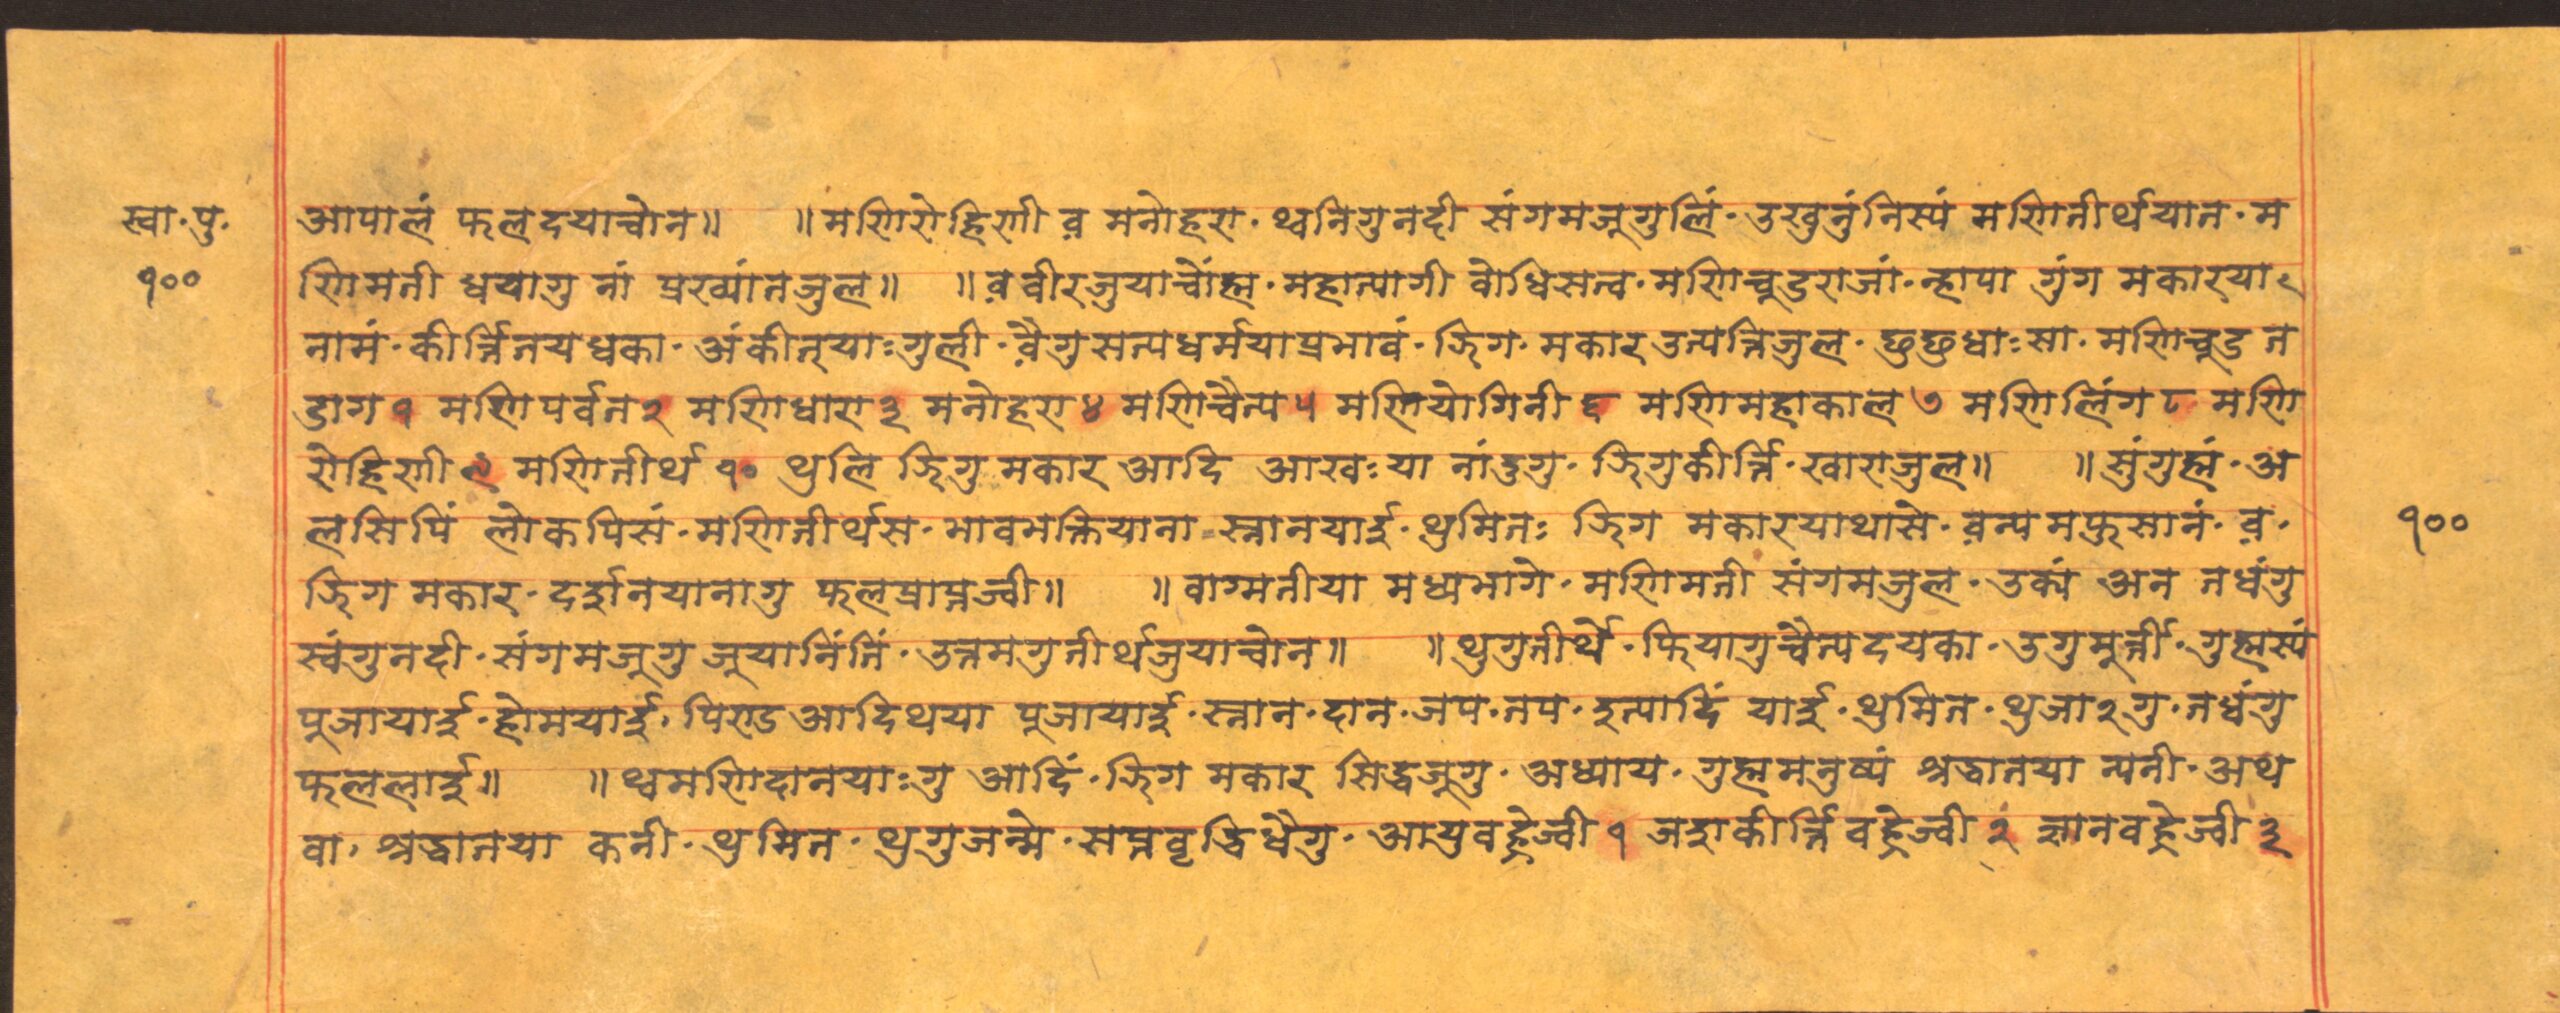 स्वा॰पु॰
१००
आपालं फलदयाच्चोन॥ ॥मणिरोहिणी व मनोहरा॰थ्वनिगुनदी संगमजूगुलिं॰उखुनुंनिस्यं मणितीर्थयात॰म
णिमती धयागु नां प्रख्यांतजुल॥ ॥ववीरजुयाच्चोंह्म॰महात्यागी वोधिसत्व॰मणिचूडराजां॰न्हापा गुंग मकारया
नामं॰कीर्त्तितयधका॰अंकीत्याःगुली॰वैगुसत्यधर्मयाप्रभावं॰झिग॰मकार उत्पत्तिजुल॰छुछुधाःसा॰मणिचूडत
डाग१ मणिपर्वत२ मणिधारा३ मनोहरा४ मणिचैत्य५ मणियोगिनी६ मणिमहाकाल७ मणिलिंग८ मणि
रोहिणी९ मणितीर्थ १० थुलि झिगु मकार आदि आखःया नांदुगु॰झिगुकीर्त्ति॰खाराजुल॥ ॥सुंगुह्मं॰अ
लसिपिं लोकपिसं॰मणितीर्थस॰भावभक्तियाना स्नानयाई॰थुमितः झिग मकारयाथासे॰वन्यमफुसानं॰व॰
झिग मकार॰दर्शनयानागु फलप्राप्तज्वी॥ ॥वाग्मतीया मध्यभागे॰मणिमती संगमजुल॰उक्यं अन तधंगु
स्वंगुनदी॰संगमजूगु जूयानिंतिं॰उत्तमगुतीर्थजुयाच्चोन॥ ॥थुगुतीर्थे॰फियागुचैत्यदयका॰उगुमूर्त्ती॰गुह्मस्यं
पूजायाई॰होमयाई॰पिण्ड आदिथया पूजायाई॰स्नान॰दान॰जप॰तप॰इत्यादिं याई॰थुमित॰थुजा२गु॰तधंगु
फललाई॥ ॥थ्वमणिदानयाःगु आदिं॰झिग मकार सिद्धजूगु॰अध्याय॰गुह्ममनुष्यं श्रद्धातया न्यनी॰अथ
वा॰श्रद्धातया कनी॰थुमित॰थुगुजन्मे॰सप्तवृद्धिधैगु॰आयुवह्रेज्वी १ जशकीर्त्तिवह्रेज्वी २ ज्ञानवह्रेज्वी ३
१००